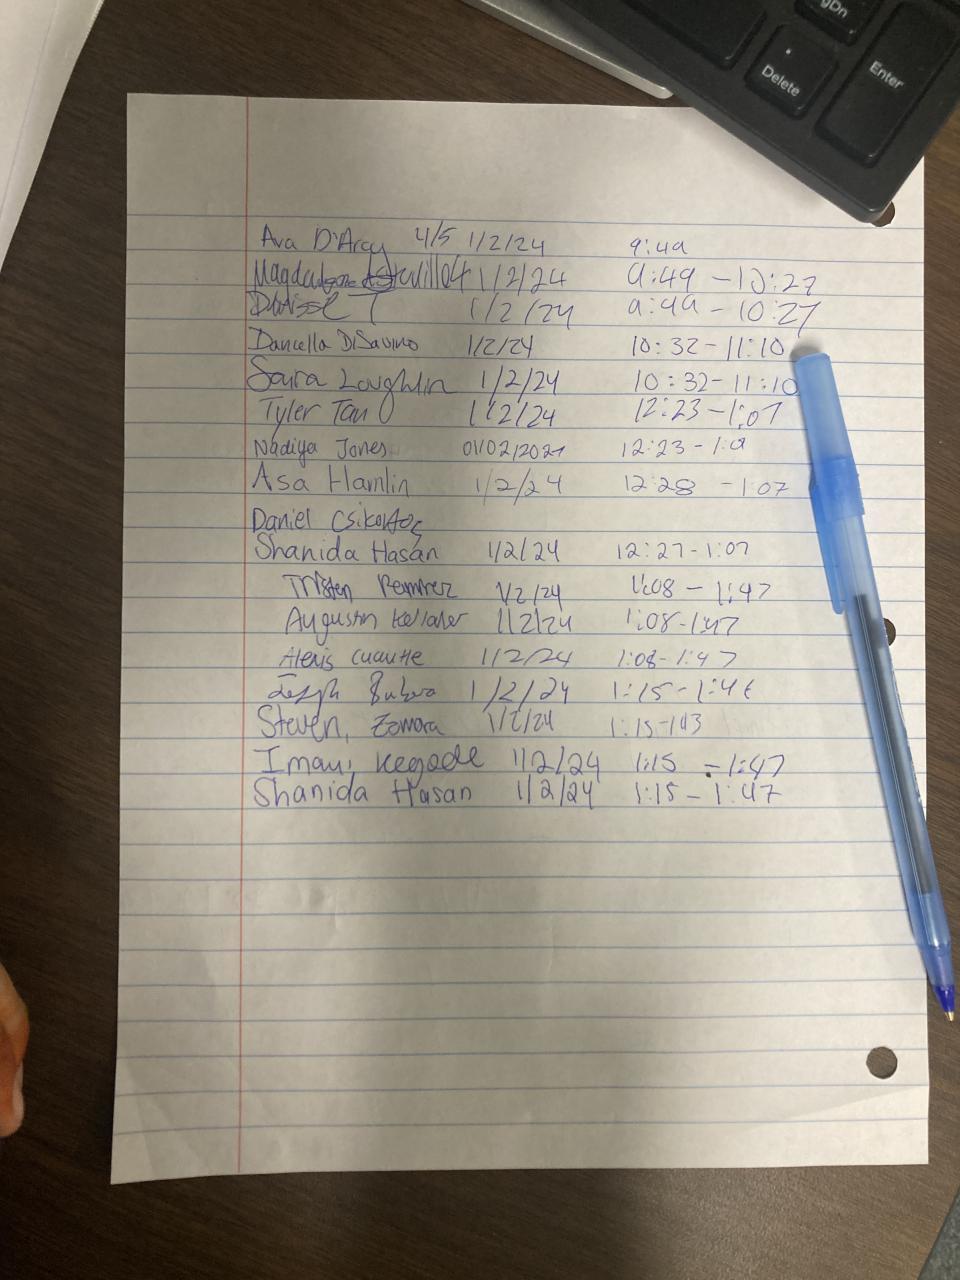 gDn
Delete
Enter
Ava D'Arcy 4/5 1/2/24 9:49
1/2/24 9:49 - 10:27
T 1/2/24 9:49 - 10:27
Dancella DiSavino 1/2/24 10:32-11:10
Saira Loughlin 1/2/24 10:32-11:10
Tyler Tan 1/2/24 12:23-1:07
Nadiya Jones 01/02/2024 12:23-1:
Asa Hamlin 1/2/24 12:28 -1:07
Daniel
Shanida Hasan 1/2/24 12:27-1:07
Tristen Ramirez 1/2/24 1:08 - 1:47
Augustin 1/2/24 1:08-1:47
Alexis Cuautle 1/2/24 1:08-1:47
Joseph 1/2/24 1:15-1:46
Steven, Zamora 1/2/24 1:15-143
Imani Kegode 1/2/24 1:15 -1:47
Shanida Hasan 1/2/24 1:15-1:47